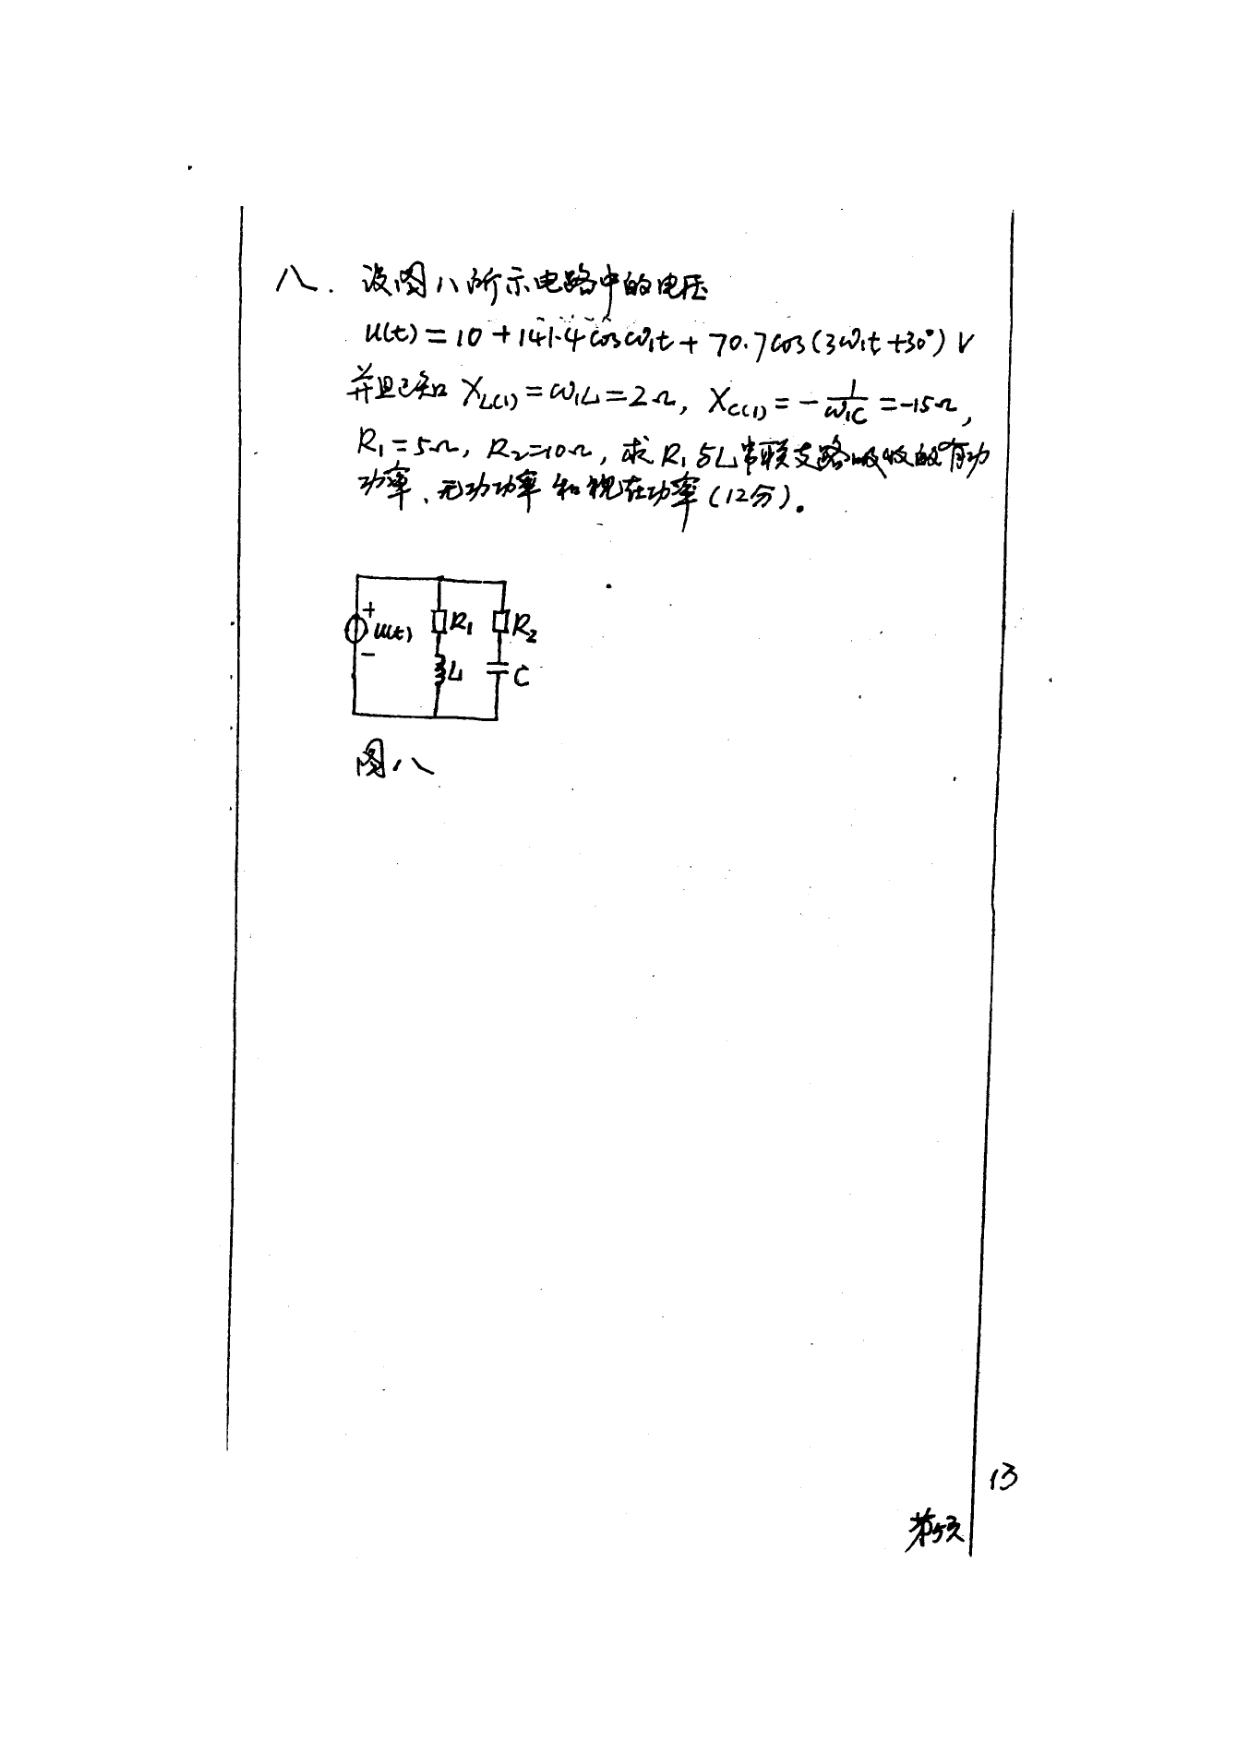 八. 设图八所示电路中的电压
u(t)=10+141.4cosω₁t+70.7cos(3ω₁t+30°)V
并且已知 X_L(1)=ω₁L=2Ω, X_C(1)=-1/ω₁C=-15Ω,
R₁=5Ω, R₂=10Ω, 求R₁与L串联支路吸收的有功
功率、无功功率和视在功率(12分).
+
u(t) R₁ R₂
-
L C
图八
13
第5页